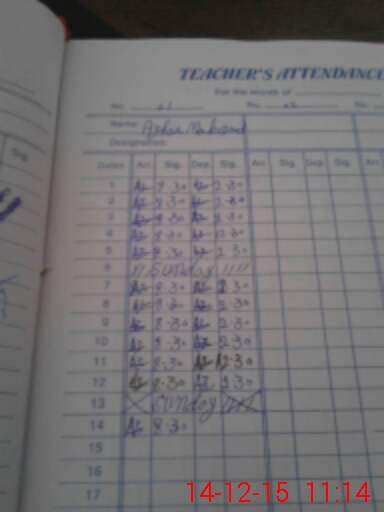 TEACHER'S ATTENDANCE
For the month of
No. 01 No. 02 No.
Name:
Designation
Dates Arr. Sig. Dep. Sig. Arr. Sig. Dep. Sig. Arr.
Sig.
1 Az 8.30 Az 2.30
2 Az 8.30 Az 2.30
3 Az 8.30 Az 2.30
4 Az 8.30 Az 12.30
5 Az 8.30 Az 2.30
6 Sunday
7 Az 8.30 Az 2.30
8 Az 8.30 Az 2.30
9 Az 8.30 Az 2.30
10 Az 8.30 Az 2.30
11 Az 8.30 Az 12.30
12 Az 8.30 Az 2.30
13 Sunday
14 Az 8.30
15
16
17
14-12-15 11:14